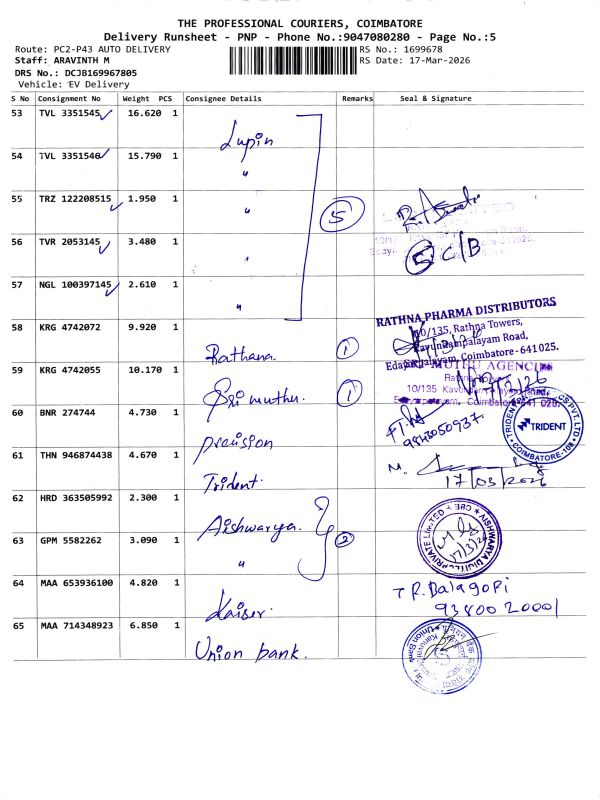 THE PROFESSIONAL COURIERS, COIMBATORE
Delivery Runsheet - PNP - Phone No.:9047080280 - Page No.:5
Route: PC2-P43 AUTO DELIVERY RS No.: 1699678
Staff: ARAVINTH M RS Date: 17-Mar-2026
DRS No.: DCJB169967805
Vehicle: EV Delivery
S No Consignment No Weight PCS Consignee Details Remarks Seal & Signature
53 TVL 3351545 16.620 1 Lupin
54 TVL 3351546 15.790 1 "
55 TRZ 122208515 1.950 1 " 5
56 TVR 2053145 3.480 1 " 5 C/B
57 NGL 100397145 2.610 1 "
58 KRG 4742072 9.920 1 Rathana 1
RATHNA PHARMA DISTRIBUTORS
10/135, Rathna Towers,
Kavundampalayam Road,
Edayarpalayam, Coimbatore - 641 025.
59 KRG 4742055 10.170 1 Sri muthu. 1
MUTHU AGENCIES
10/135
60 BNR 274744 4.730 1 precision
9843050937
TRIDENT
COIMBATORE
61 THN 946874438 4.670 1 Trident.
M.
17/03/2026
62 HRD 363505992 2.300 1 Aishwarya. 2
63 GPM 5582262 3.090 1 "
AISHWARYA DIGITEC PRIVATE LIMITED CBE
17/3/26
64 MAA 653936100 4.820 1 Kaiser.
T R. Balagopi
9380020001
65 MAA 714348923 6.850 1 Union bank.
Union Bank